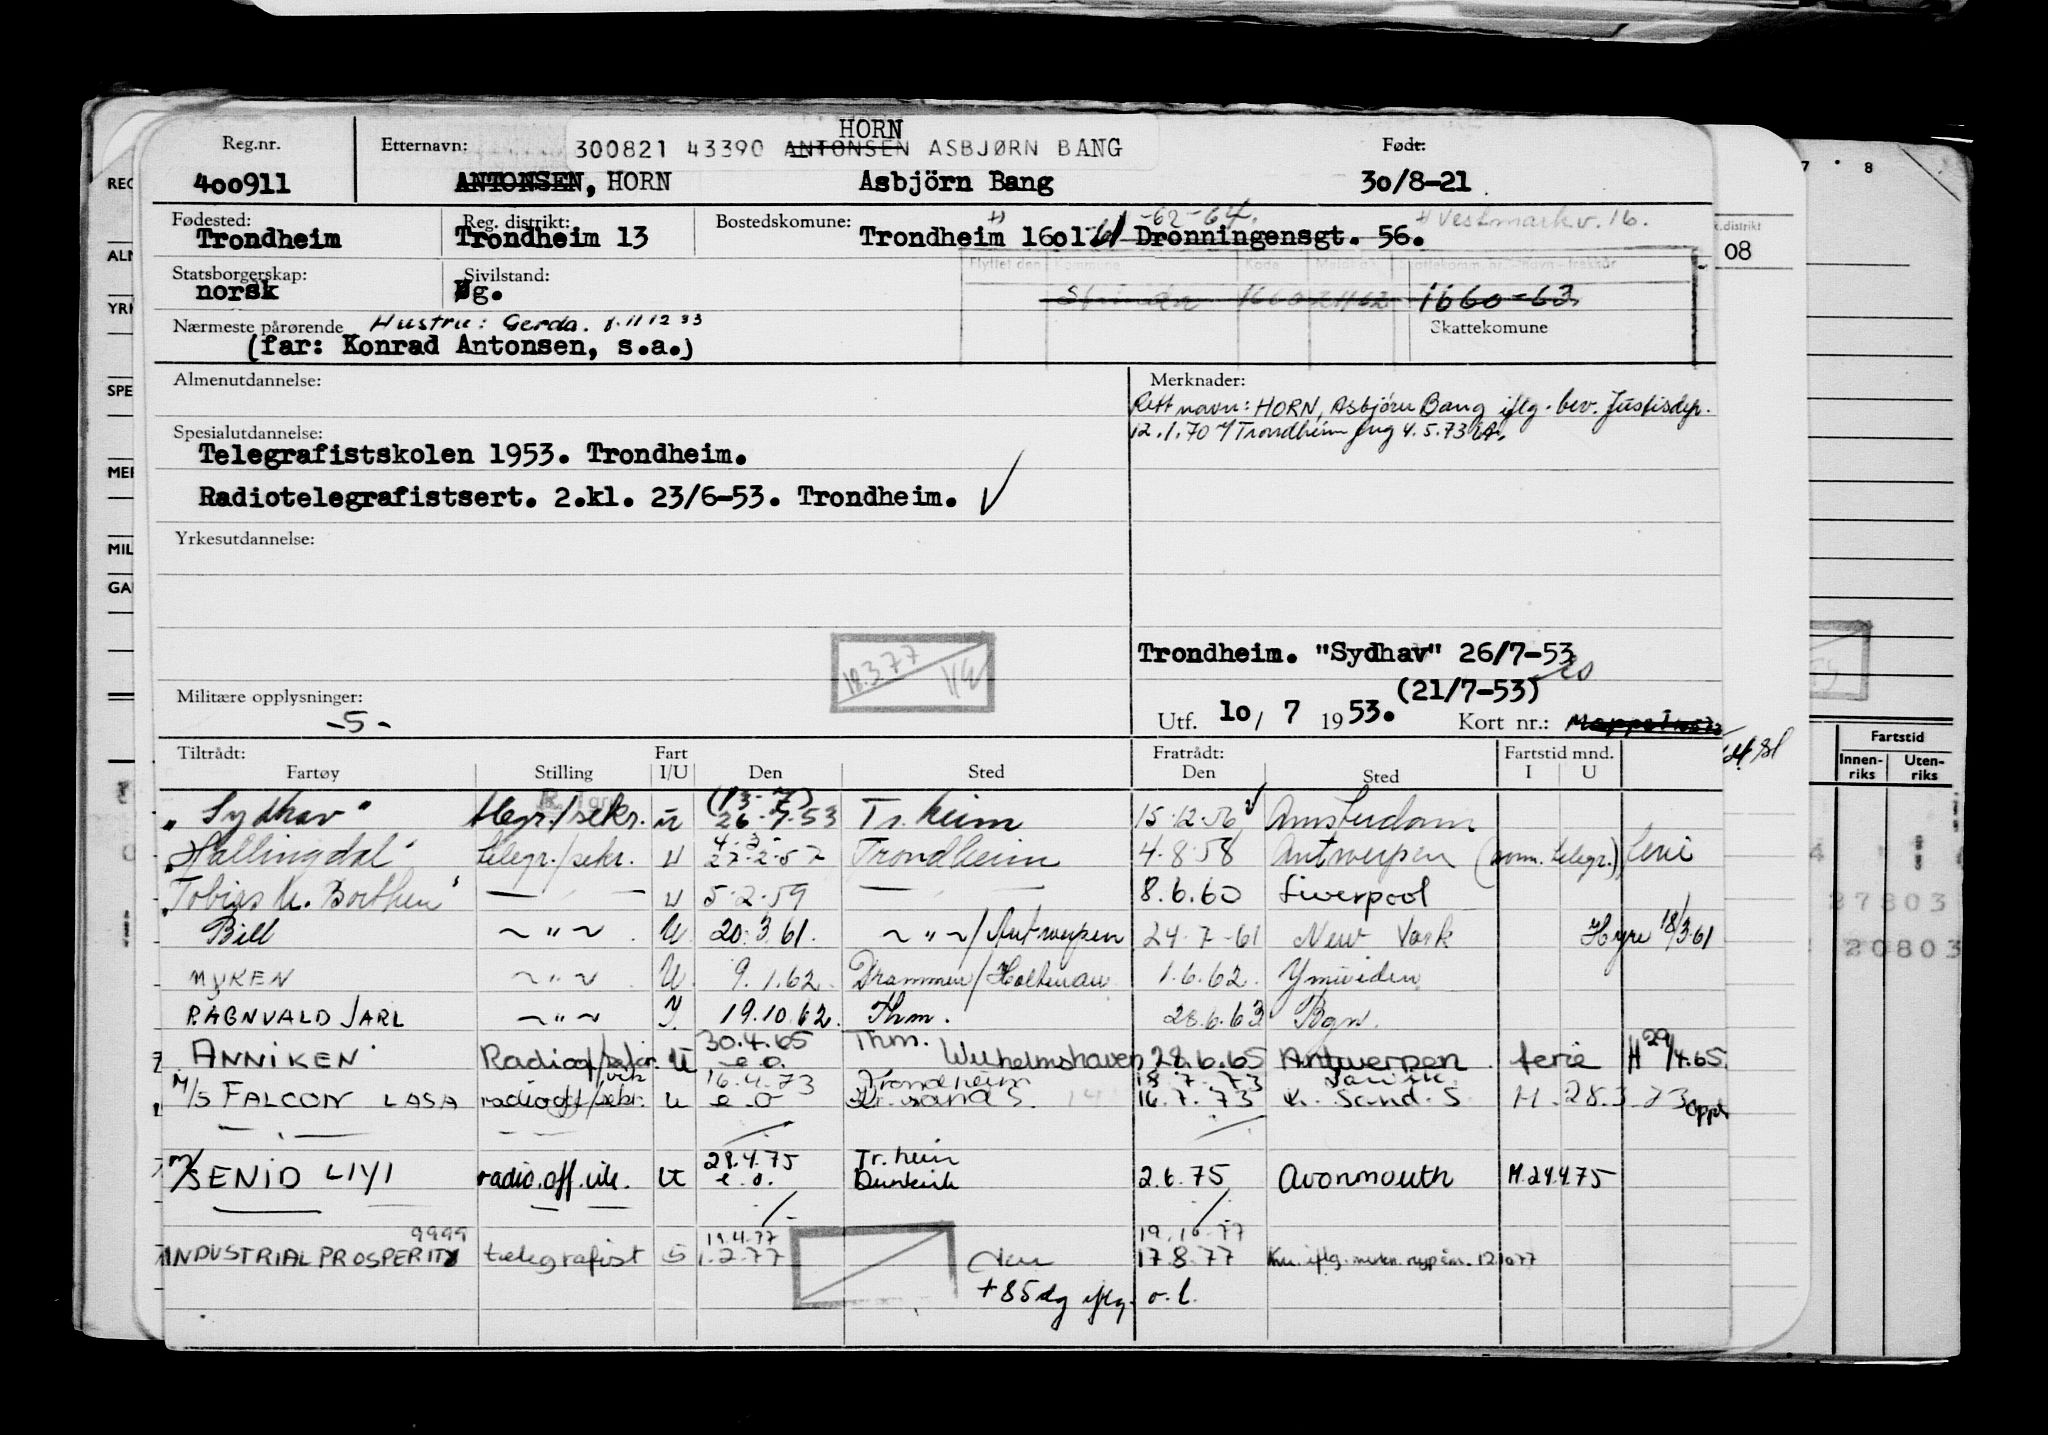 HORN
Reg.nr. Etternavn: 300821 43390 ANTONSEN ASBJØRN BANG Født:
400911 ANTONSEN, HORN Asbjörn Bang 30/8-21
Fødested: Reg. distrikt: Bostedskomune: -62-64. Vestmarkv. 16.
Trondheim Trondheim 13 Trondheim 1601 Dronningensgt. 56.
Statsborgerskap: Sivilstand: Flyttet den Kommune Kode
norsk g. 1660-63
Nærmeste pårørende Hustru: Gerda. f. 11 12 33 Skattekomune
(far: Konrad Antonsen, s.a.)
Almenutdannelse: Merknader:
Rett navn: HORN, Asbjörn Bang iflg. bev. Justisdep.
12.1.70 Trondheim 4.5.73
Spesialutdannelse:
Telegrafistskolen 1953. Trondheim.
Radiotelegrafistsert. 2.kl. 23/6-53. Trondheim.
Yrkesutdannelse:
18.3.77
Trondheim. "Sydhav" 26/7-53
(21/7-53)
Militære opplysninger: -5- Utf. 10/ 7 1953. Kort nr.:
Tiltrådt: Fart Fratrådt: Fartstid mnd.
Fartøy Stilling I/U Den Sted Den Sted I U
(13-7)
"Sydhav" tlegr./sekr. u 26.7.53 Tr.heim 15.12.56 Amsterdam
4-3-
"Hallingdal" telegr./sekr. u 27.2.57 Trondheim 4.8.58 Antwerpen (avm. telegr.) ferie
"Tobias U. Borthen" — u 5.2.59 — 8.6.60 Liverpool
Bill ~ " ~ U 20.3.61. ~ " ~/Antwerpen 24.7-61 New York Hyre 18/3.61
MYKEN ~ " ~ U 9.1.62. Drammen/Holtenau 1.6.62. Ymuiden
RAGNVALD JARL ~ " ~ I 19.10.62. Thm. 28.6.63 Bgn.
30.4.65 Thm.
ANNIKEN Radiooff/sekr. U e.o. Wilhelmshaven 28.6.65 Antwerpen ferie H 29/4.65.
vik 16.4.73 Trondheim 18.7.73
M/S FALCON LASA radiooff/sekr. u e.o Kr.sand S. 16.7.73 K. Sand. S H. 28.3.73 oppt
28.4.75 Tr.heim
M/S ENID LIYI radio.off.vik. U e.o. Dunkirk 2.6.75 Avonmouth M.24.4.75
9999 19.4.77 19.10.77
INDUSTRIAL PROSPERITY telegrafist 5 1.2.77 17.8.77
+85 dg iflg. o.l.
REG
ALM
YRK
SPE
MER
MIL
GA
7 8
distrikt
08
Fartstid
Innen-riks Uten-riks
37803
20803